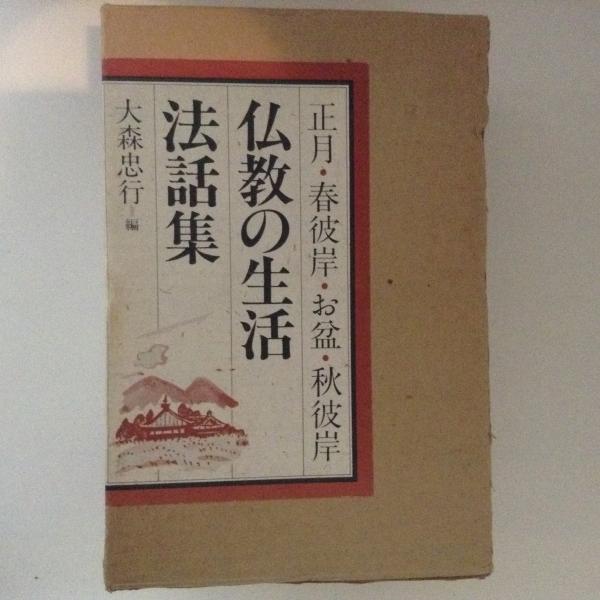 正月・春彼岸・お盆・秋彼岸
仏教の生活
法話集
大森忠行＝編